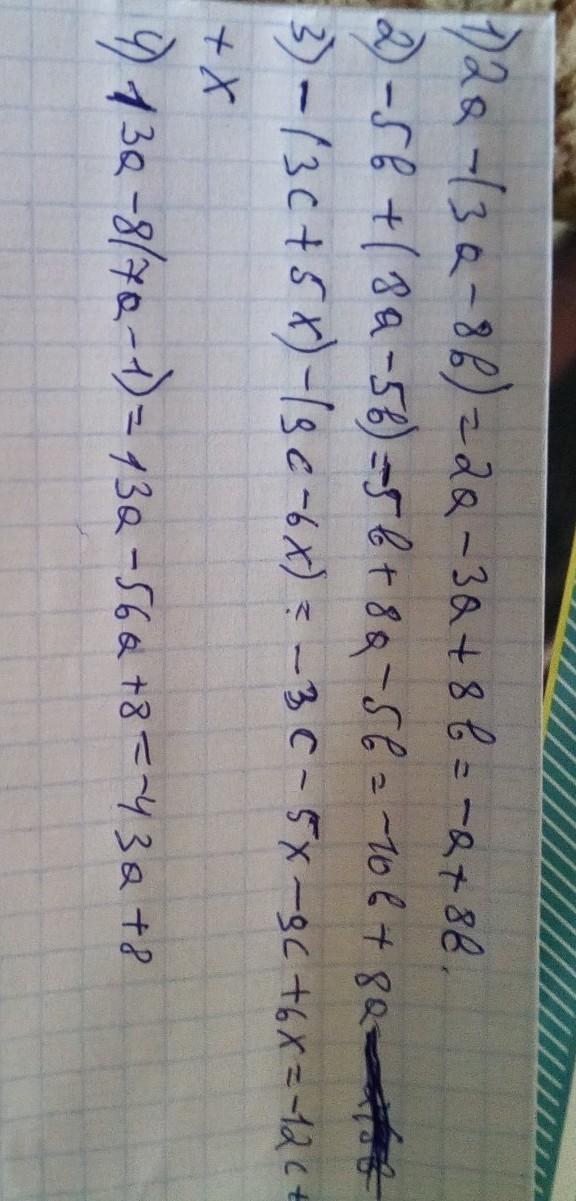 1) 2a-(3a-8b)=2a-3a+8b=-a+8b.
2) -5b+(8a-5b)=-5b+8a-5b=-10b+8a
3) -(3c+5x)-(9c-6x)=-3c-5x-9c+6x=-12c+
+x
4) 13a-8(7a-1)=13a-56a+8=-43a+8